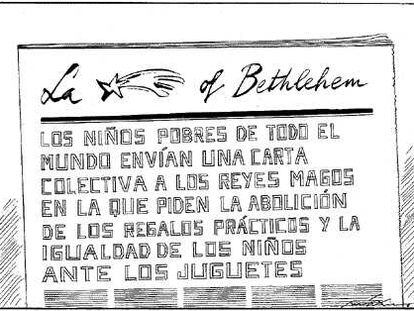 La of Bethlehem
LOS NIÑOS POBRES DE TODO EL
MUNDO ENVÍAN UNA CARTA
COLECTIVA A LOS REYES MAGOS
EN LA QUE PIDEN LA ABOLICIÓN
DE LOS REGALOS PRÁCTICOS Y LA
IGUALDAD DE LOS NIÑOS
ANTE LOS JUGUETES